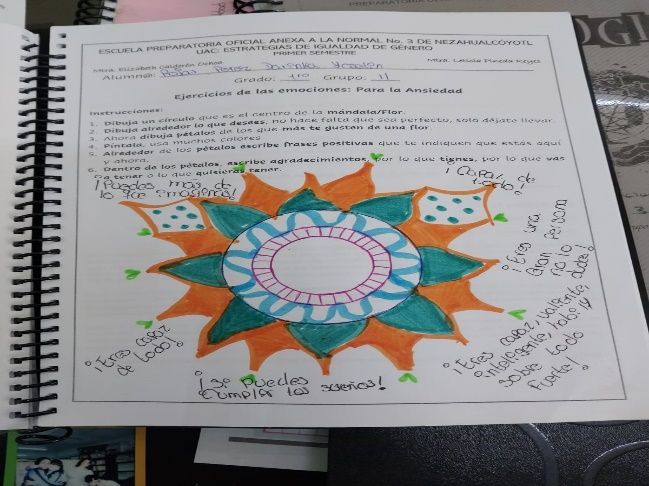 ESCUELA PREPARATORIA OFICIAL ANEXA A LA NORMAL No. 3 DE NEZAHUALCOYOTL
UAC: ESTRATEGIAS DE IGUALDAD DE GÉNERO
PRIMER SEMESTRE
Mtra. Elizabeth Calderón Ochoa
Mtra. Leticia Pineda Reyes
Alumn@: Perez
Grado: 1ro Grupo: 11
Ejercicios de las emociones: Para la Ansiedad
Instrucciones:
1. Dibuja un círculo que es el centro de la mándala/Flor.
2. Dibuja alrededor lo que desees, no hace falta que sea perfecto, solo déjate llevar.
3. Ahora dibuja pétalos de los que más te gustan de una flor.
4. Píntala, usa muchos colores.
5. Alrededor de los pétalos escribe frases positivas que te indiquen que estás aquí
y ahora.
6. Dentro de los pétalos, escribe agradecimientos, por lo que tienes, por lo que vas
a tener o lo que quisieras tener.
¡Puedes más de
lo que imaginas!
¡Capaz de
todo!
¡Eres una
Gran persona
no lo
dudes!
¡Eres capaz
de todo!
¡Se puedes
Cumplir tus sueños!
¡Eres capaz, valiente,
inteligente, y
sobre todo
fuerte!